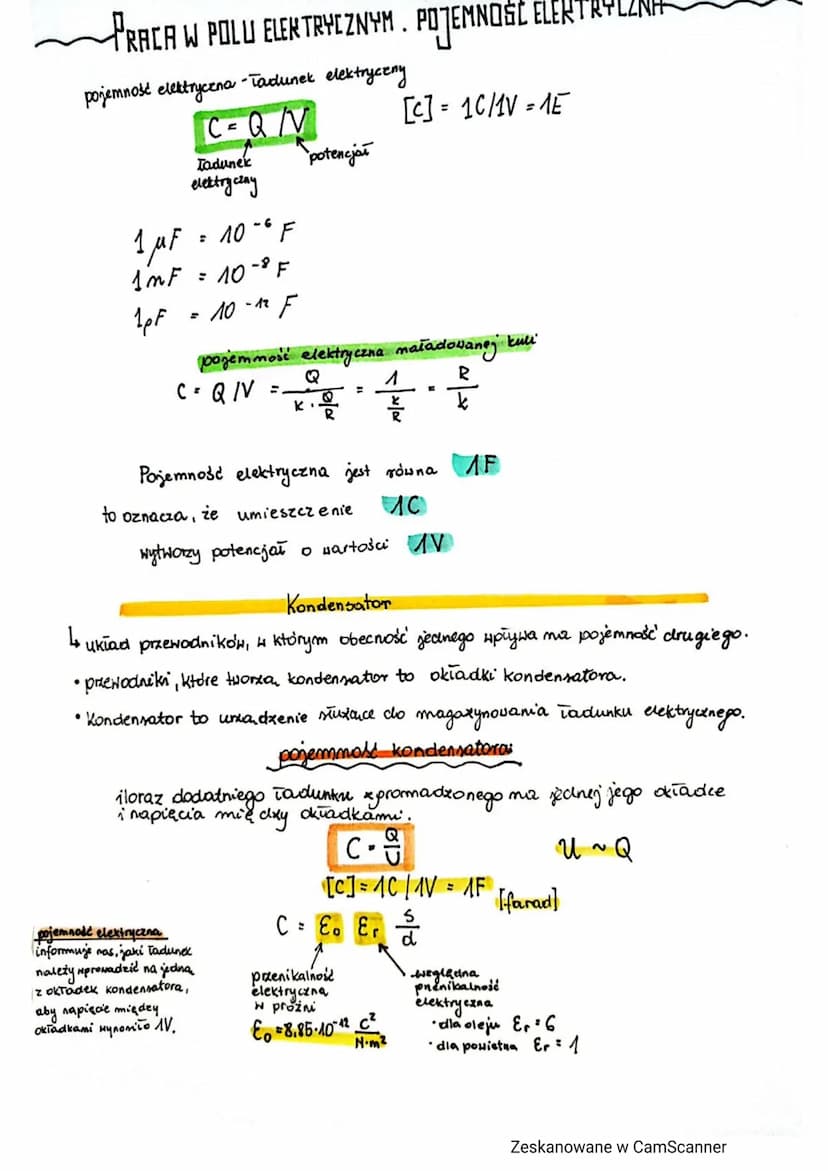 PRACA W POLU ELEKTRYCZNYM. POJEMNOŚĆ ELEKTRYCZNA
pojemność elektryczna - ładunek elektryczny
C = Q / V
[C] = 1C/1V = 1F
ładunek elektryczny
potencjał
1 μF = 10⁻⁶ F
1 nF = 10⁻⁹ F
1pF = 10⁻¹² F
pojemność elektryczna naładowanej kuli
C = Q / V = Q / (k · Q/R) = 1 / (k/R) = R / k
Pojemność elektryczna jest równa 1F
to oznacza, że umieszczenie 1C
wytworzy potencjał o wartości 1V
Kondensator
↳ układ przewodników, w którym obecność jednego wpływa na pojemność drugiego.
• przewodniki, które tworzą kondensator to okładki kondensatora.
• Kondensator to urządzenie służące do magazynowania ładunku elektrycznego.
pojemność kondensatora:
iloraz dodatniego ładunku zgromadzonego na jednej jego okładce
i napięcia między okładkami.
C = Q/U
U ~ Q
[C] = 1C / 1V = 1F [farad]
C = ε₀ εᵣ s/d
pojemność elektryczna
informuje nas, jaki ładunek
należy wprowadzić na jedną
z okładek kondensatora,
aby napięcie między
okładkami wynosiło 1V.
przenikalność
elektryczna
w próżni
ε₀ = 8,85·10⁻¹² C²/N·m²
względna
przenikalność
elektryczna
• dla oleju εᵣ = 6
• dla powietrza εᵣ = 1
Zeskanowane w CamScanner